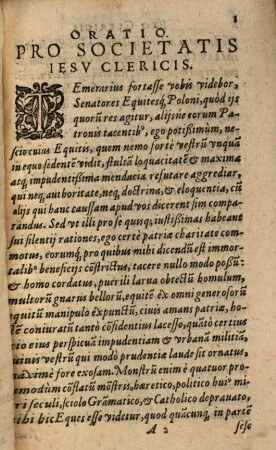 1
ORATIO
PRO SOCIETATIS
IESV CLERICIS.
TEmerarius fortasse vobis videbor,
Senatores Equitesq́; Poloni, quòd ijs
quorū res agitur, alijsue eorum Pa-
tronis tacentibꝰ, ego potißimùm, nes-
scio cuius Equitis, quem nemo fortè vestrū vnquā
in equo sedentē vidit, stultā loquacitatē & maxima
atq́; impudentißima mendacia, refutare aggrediar,
qui neq́; authoritate, neq́; doctrina, & eloquentia, cū
alijs qui hanc caussam apud vos dicerent sim compa-
randus. Sed vt illi pro se quisq́; iustißimas habeant
sui silentij rationes, ego certè patriæ charitate com-
motus, eorumq́; pro quibus mihi dicendū est immor-
talibꝰ beneficijs cōstrictus, tacere nullo modo possū:
& homo cordatus, puerili larua obtectū homulum,
multorū gnarus bellorū, equitē ex omni generosorū
equitū manipulo expunctū, ciuis amans patriæ, ho-
coniuratū tantò cōfidentius lacesso, quātò certius
eius perspicuā impudentiam & vrbanā militiā,
vestrū qui modò prudentia laude sit ornatus,
maximè fore exosam. Monstrū enim è quatuor pro-
modùm cōflatū mōstris, hæretico, politico huiꝰ mi-
seculi, sciolo Grāmatico, & Catholico deprauato,
hic Eques esse videtur, quod quācunq́; in partē
A 2 sese